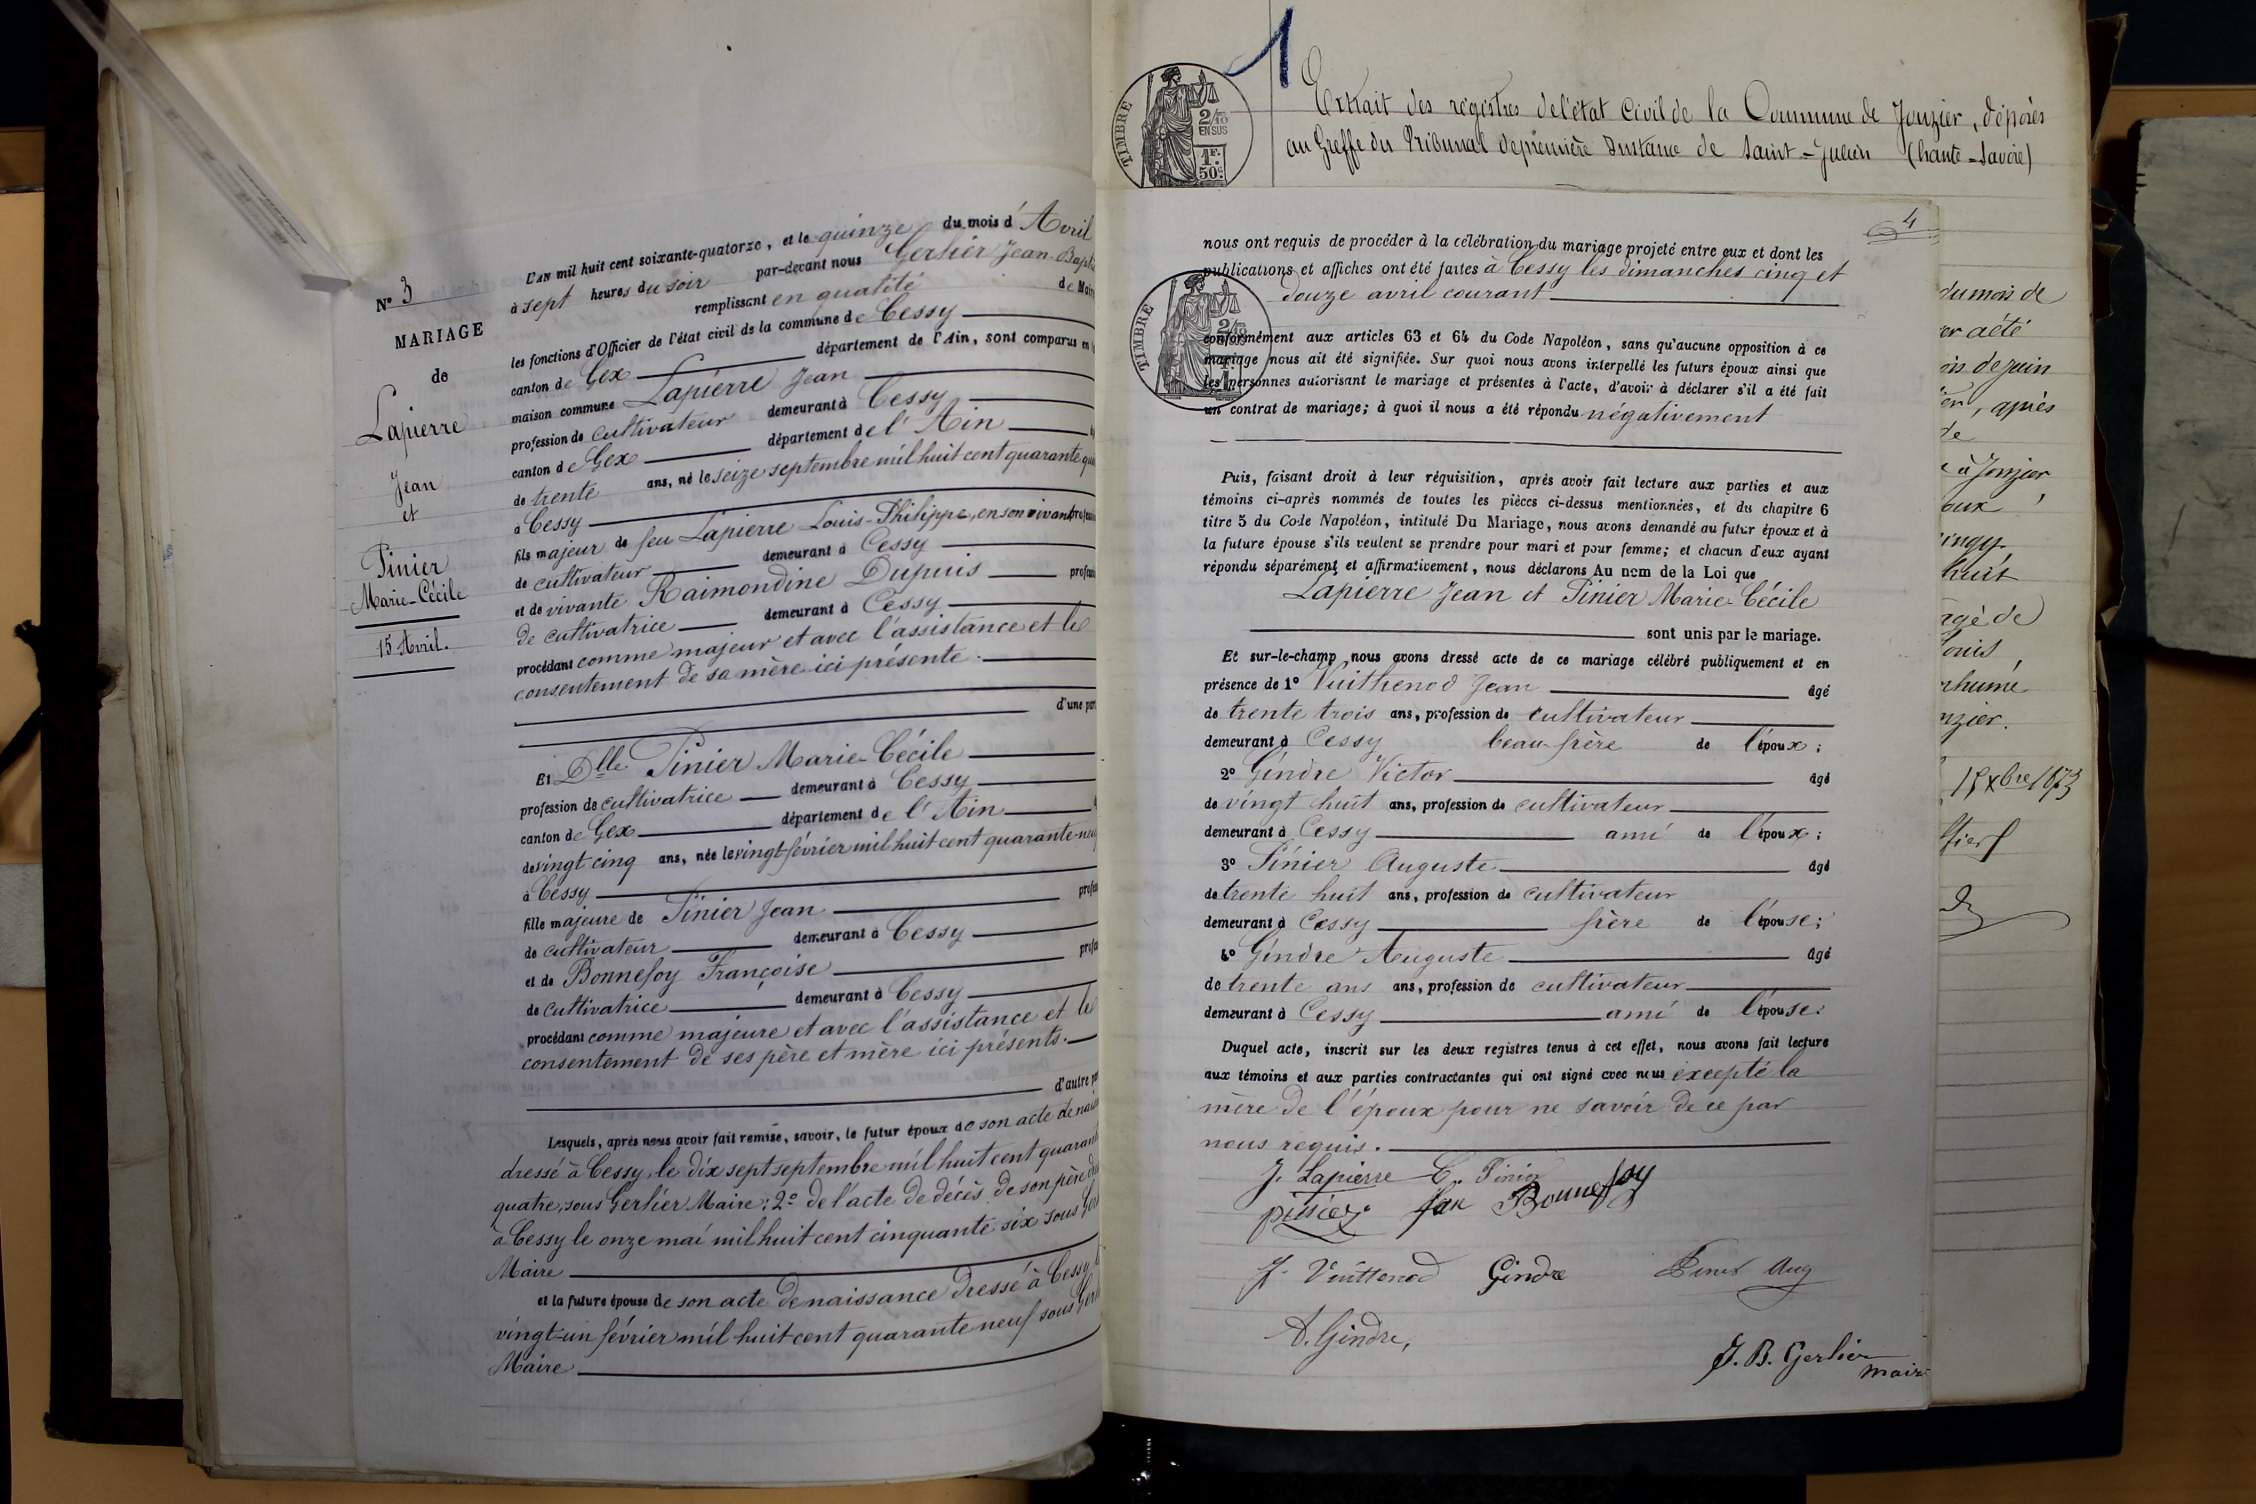 N° 3
MARIAGE
de
Lapierre
Jean
et
Pinier
Marie-Cécile
15 Avril.
L'AN mil huit cent soixante-quatorze, et le quinze du mois d'Avril
à sept heures du soir par-devant nous Gerlier Jean-Bapti
remplissant en qualité de Maire
les fonctions d'Officier de l'état civil de la commune de Cessy
canton de Gex département de l'Ain, sont comparus en
maison commune Lapierre Jean
profession de cultivateur demeurant à Cessy
canton de Gex département de l'Ain
de trente ans, né le seize septembre mil huit cent quarante qua
à Cessy
fils majeur de feu Lapierre Louis-Philippe, en son vivant, profession
de cultivateur demeurant à Cessy
et de vivante Raimondine Dupuis profess
de cultivatrice demeurant à Cessy
procédant comme majeur et avec l'assistance et le
consentement de sa mère ici présente.
d'une part
Et Dlle Pinier Marie-Cécile
profession de cultivatrice demeurant à Cessy
canton de Gex département de l'Ain
de vingt cinq ans, née le vingt février mil huit cent quarante-neuf
à Cessy
fille majeure de Pinier Jean profess
de cultivateur demeurant à Cessy
et de Bonnefoy Françoise profess
de cultivatrice demeurant à Cessy
procédant comme majeure et avec l'assistance et le
consentement de ses père et mère ici présents.
d'autre par
Lesquels, après nous avoir fait remise, savoir, le futur époux de son acte de naiss
dressé à Cessy, le dix sept septembre mil huit cent quarant
quatre, sous Gerlier Maire; 2° de l'acte de décès de son père
à Cessy le onze mai mil huit cent cinquante six sous Ger
Maire
et la future épouse de son acte de naissance dressé à Cessy
vingt-un février mil huit cent quarante neuf sous Gerl
Maire
1
TIMBRE
2/10
EN SUS
1F.
50c.
Extrait des registres de l'état civil de la Commune de Jonzier, déposés
au Greffe du Tribunal de première Instance de Saint-Julien (haute-Savoie)
4
nous ont requis de procéder à la célébration du mariage projeté entre eux et dont les
publications et affiches ont été faites à Cessy les dimanches cinq et
douze avril courant
TIMBRE
2/10
conformément aux articles 63 et 64 du Code Napoléon, sans qu'aucune opposition à ce
mariage nous ait été signifiée. Sur quoi nous avons interpellé les futurs époux ainsi que
les personnes autorisant le mariage et présentes à l'acte, d'avoir à déclarer s'il a été fait
un contrat de mariage; à quoi il nous a été répondu négativement
Puis, faisant droit à leur réquisition, après avoir fait lecture aux parties et aux
témoins ci-après nommés de toutes les pièces ci-dessus mentionnées, et du chapitre 6
titre 5 du Code Napoléon, intitulé Du Mariage, nous avons demandé au futur époux et à
la future épouse s'ils veulent se prendre pour mari et pour femme; et chacun d'eux ayant
répondu séparément et affirmativement, nous déclarons Au nom de la Loi que
Lapierre Jean et Pinier Marie-Cécile
sont unis par le mariage.
Et sur-le-champ nous avons dressé acte de ce mariage célébré publiquement et en
présence de 1° Vuithenod Jean âgé
de trente trois ans, profession de cultivateur
demeurant à Cessy beau-frère de l'époux;
2° Gindre Victor âgé
de vingt huit ans, profession de cultivateur
demeurant à Cessy ami de l'époux;
3° Pinier Auguste âgé
de trente huit ans, profession de cultivateur
demeurant à Cessy frère de l'épouse;
4° Gindre Auguste âgé
de trente ans ans, profession de cultivateur
demeurant à Cessy ami de l'épouse.
Duquel acte, inscrit sur les deux registres tenus à cet effet, nous avons fait lecture
aux témoins et aux parties contractantes qui ont signé avec nous excepté la
mère de l'époux pour ne savoir de ce par
nous requis.
J. Lapierre C. Pinier
pinier fse Bonnefoy
J. Vuittenod Gindre Pinier Aug
A. Gindre,
J. B. Gerlier
maire
du mois de
er a été
ois de juin
er, après
de
à Jonzier
oux
ingy
huit
âgé de
Louis
nhumé
nzier.
15 xbre 1873